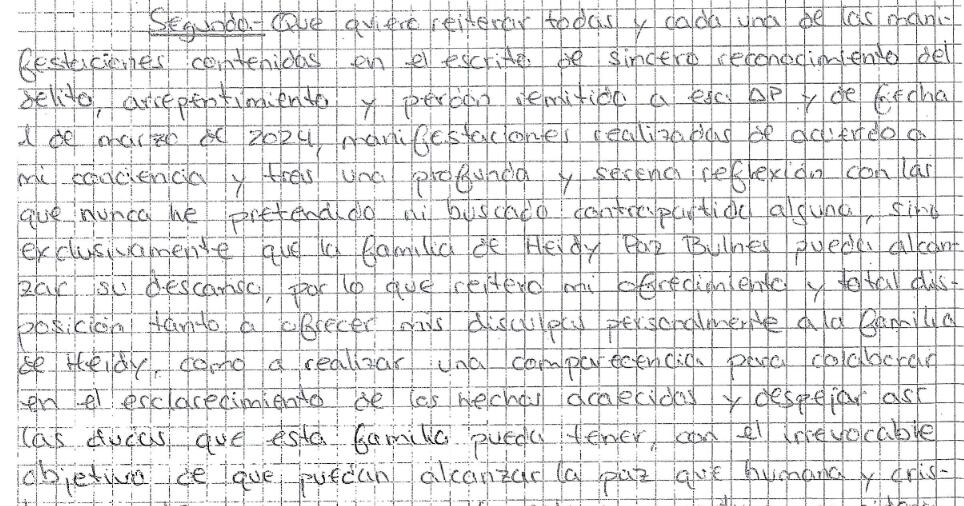 Segundo.- Que quiero reiterar todas y cada una de las mani-
festaciones contenidas en el escrito de sincero reconocimiento del
delito, arrepentimiento y perdón remitido a esa AP y de fecha
1 de marzo de 2024, manifestaciones realizadas de acuerdo a
mi conciencia y tras una profunda y serena reflexión con las
que nunca he pretendido ni buscado contrapartida alguna, sino
exclusivamente que la familia de Heidy Paz Bulnes pueda alcan-
zar su descanso, por lo que reitero mi ofrecimiento y total dis-
posición tanto a ofrecer mis disculpas personalmente a la familia
de Heidy, como a realizar una comparecencia para colaborar
en el esclarecimiento de los hechos acaecidos y despejar así
las dudas que esta familia pueda tener, con el irrevocable
objetivo de que puedan alcanzar la paz que humana y cris-